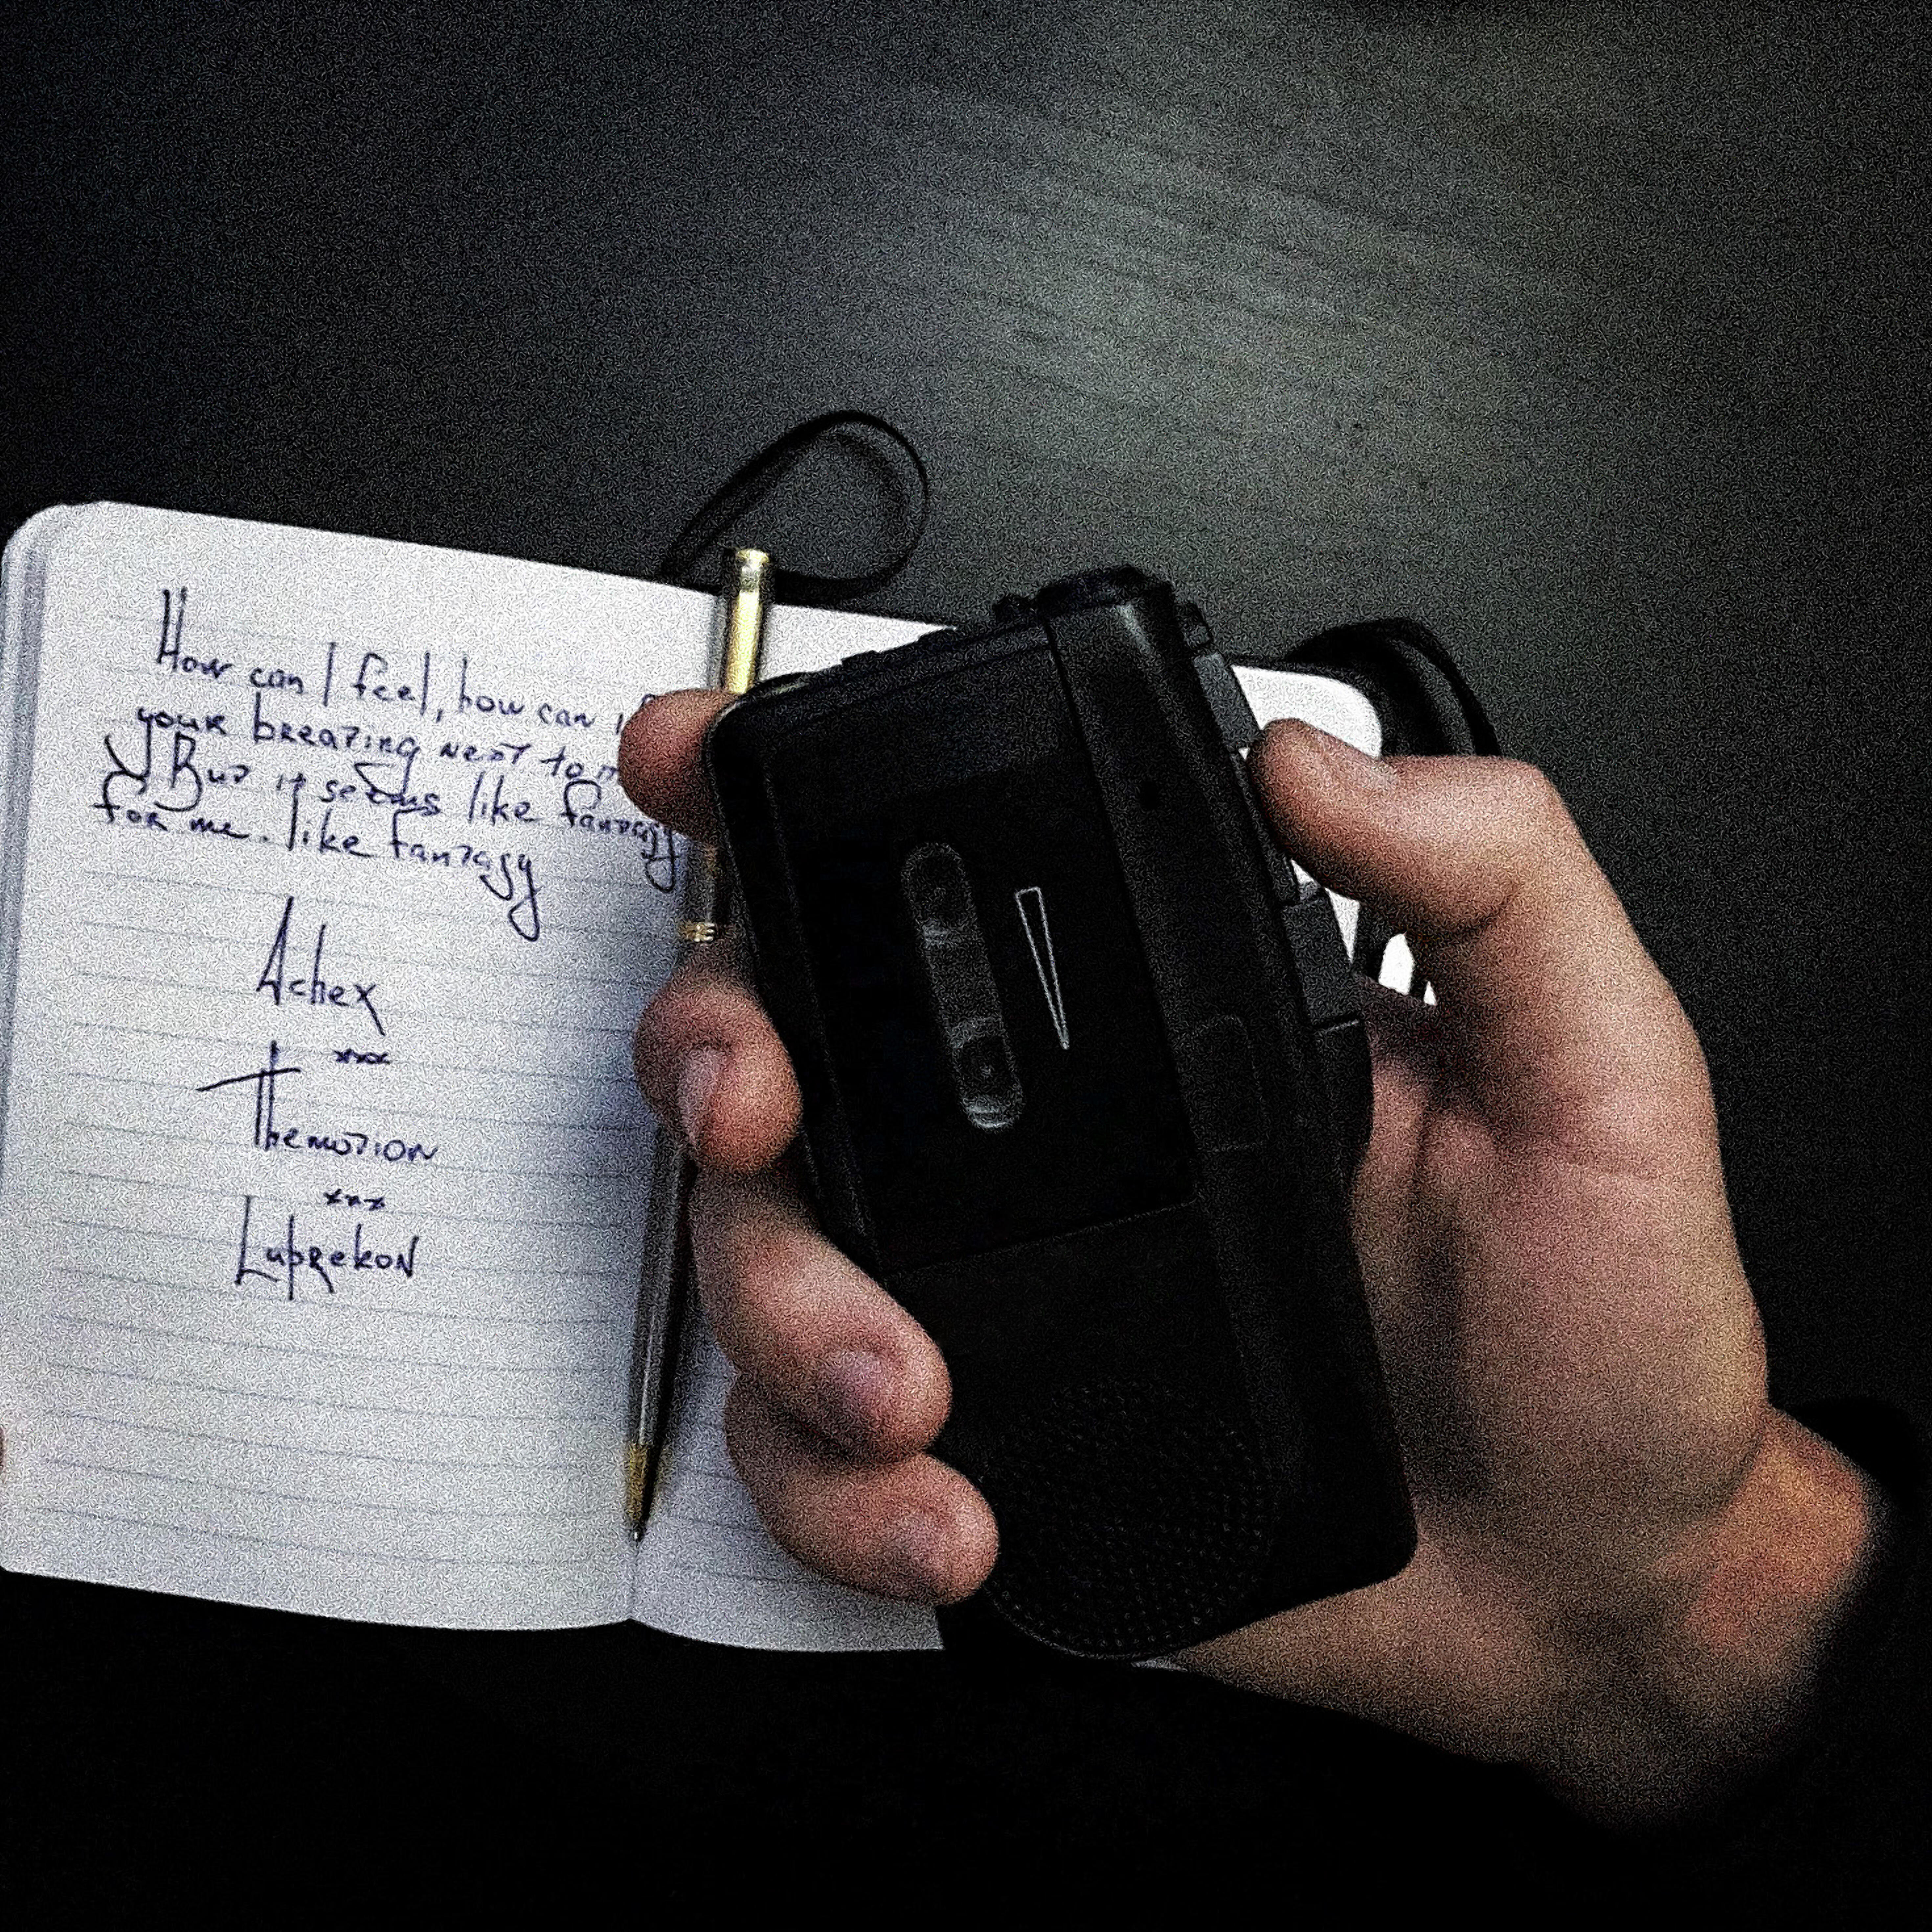 How can I feel, how can
your breazing next to
But it seems like fantasy
for me. like fantasy
Achex
xxx
Themotion
xxx
Luprekon